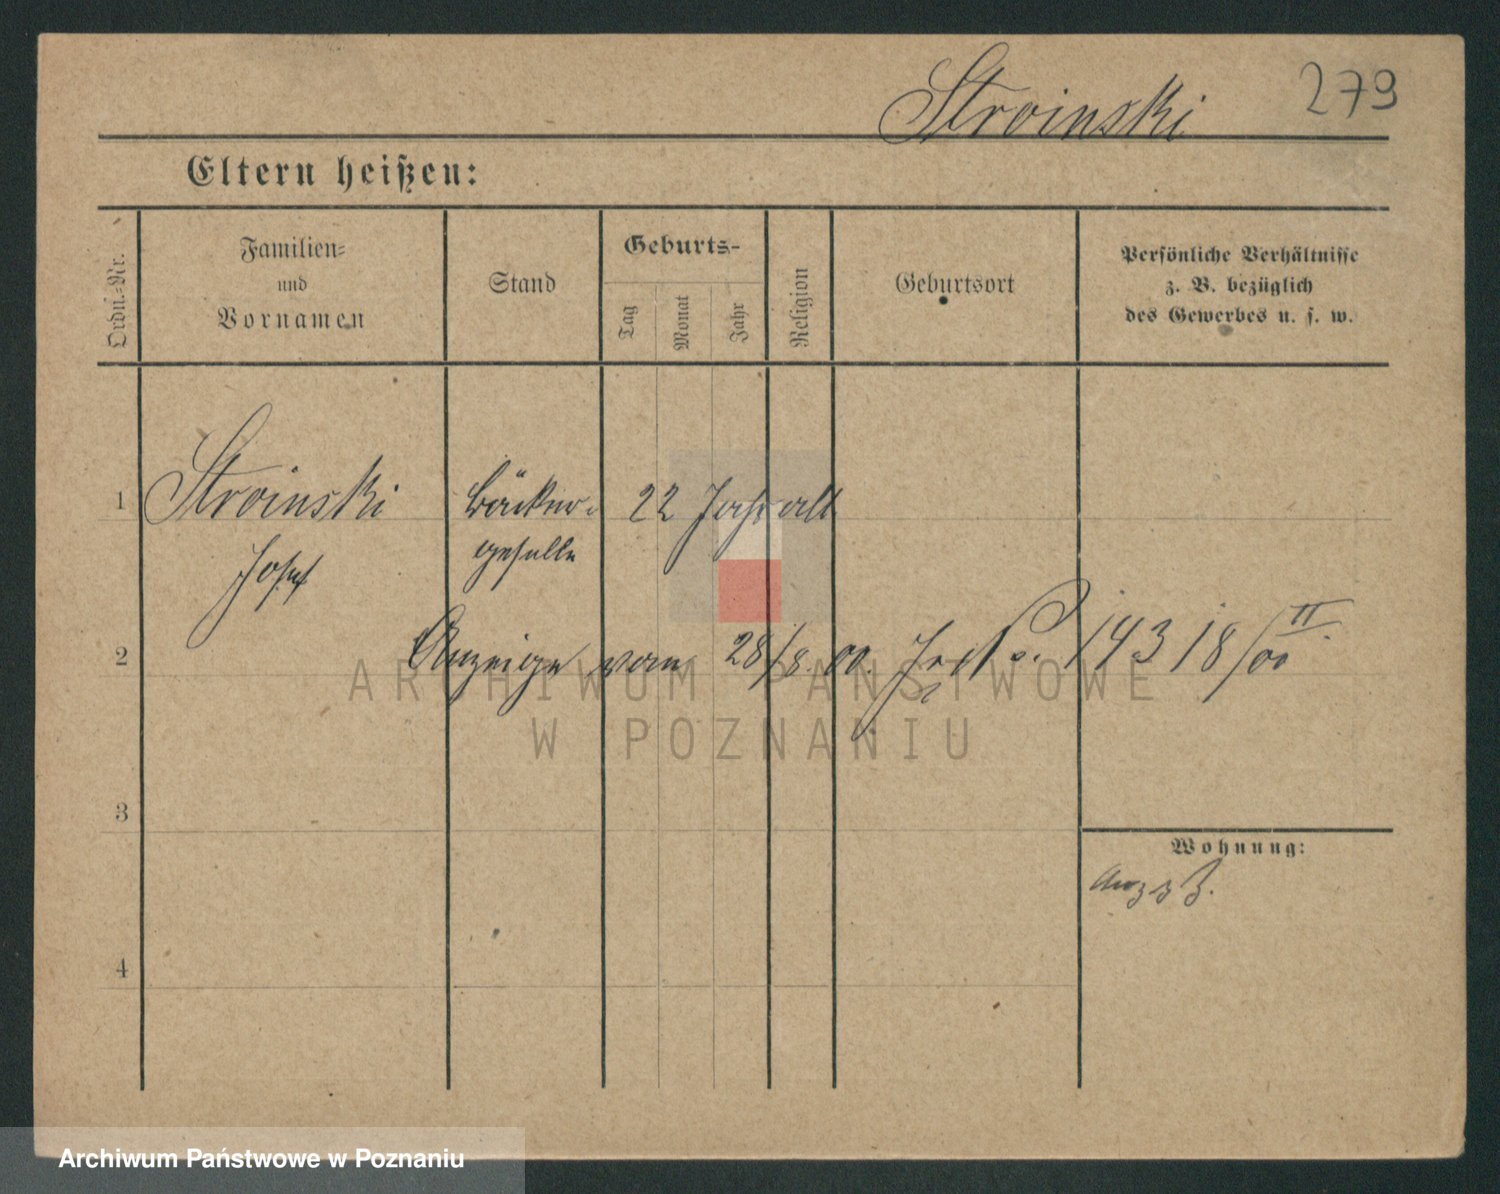 Stroinski 279
Eltern heißen:
Ordn.-Nr.
Familien-
und
Vornamen
Stand
Geburts-
Tag
Monat
Jahr
Religion
Geburtsort
Persönliche Verhältnisse
z. B. bezüglich
des Gewerbes u. s. w.
1 Stroinski Bäcker- 22 Jahr alt
Josef geselle
2 Anzeige vom 28/8. 00. 143 18/00 II
ARCHIWUM PAŃSTWOWE
W POZNANIU
3
Wohnung:
4
Archiwum Państwowe w Poznaniu